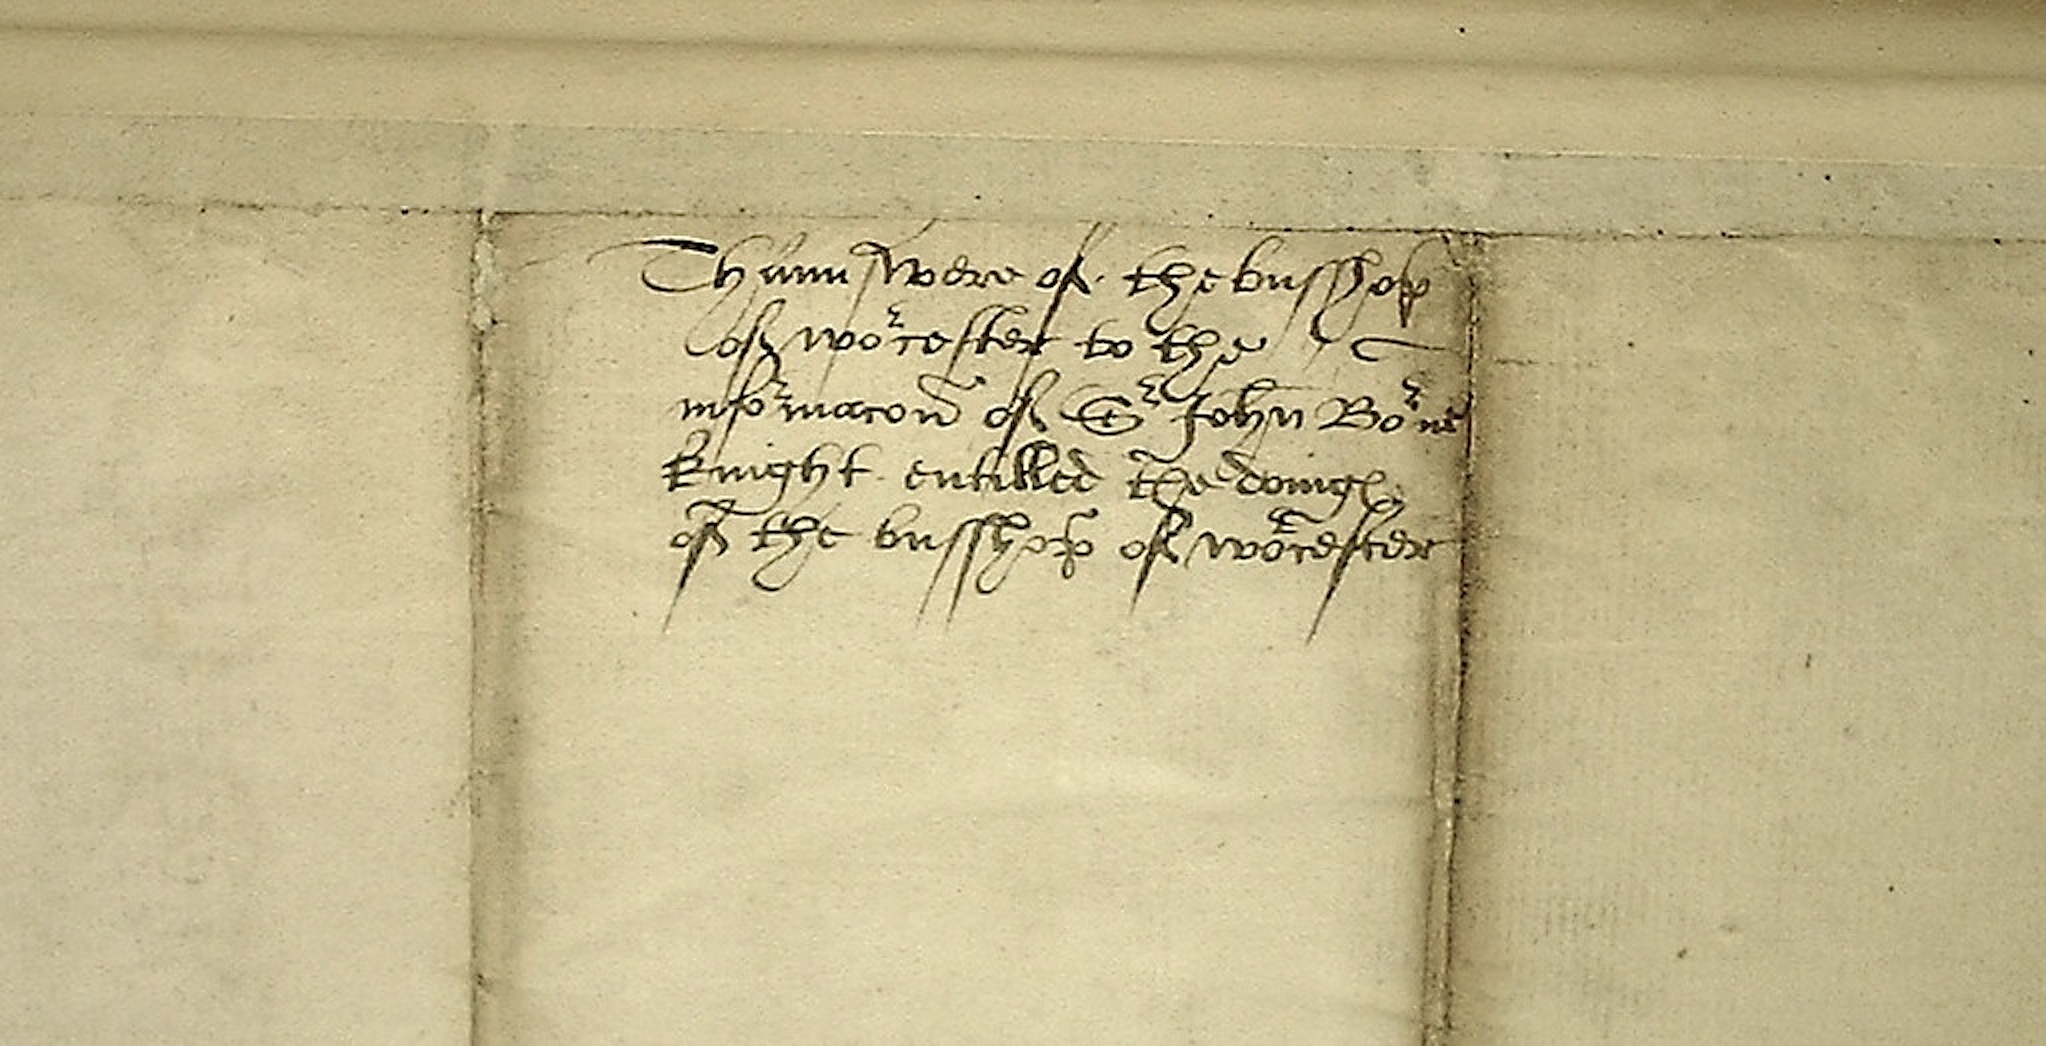 Thaunswere of the busshop
of wo^rcester to the
info^rmacon of S^r John Bo^rne
knight entitled the doing↉
of the busshop of wo^rcester